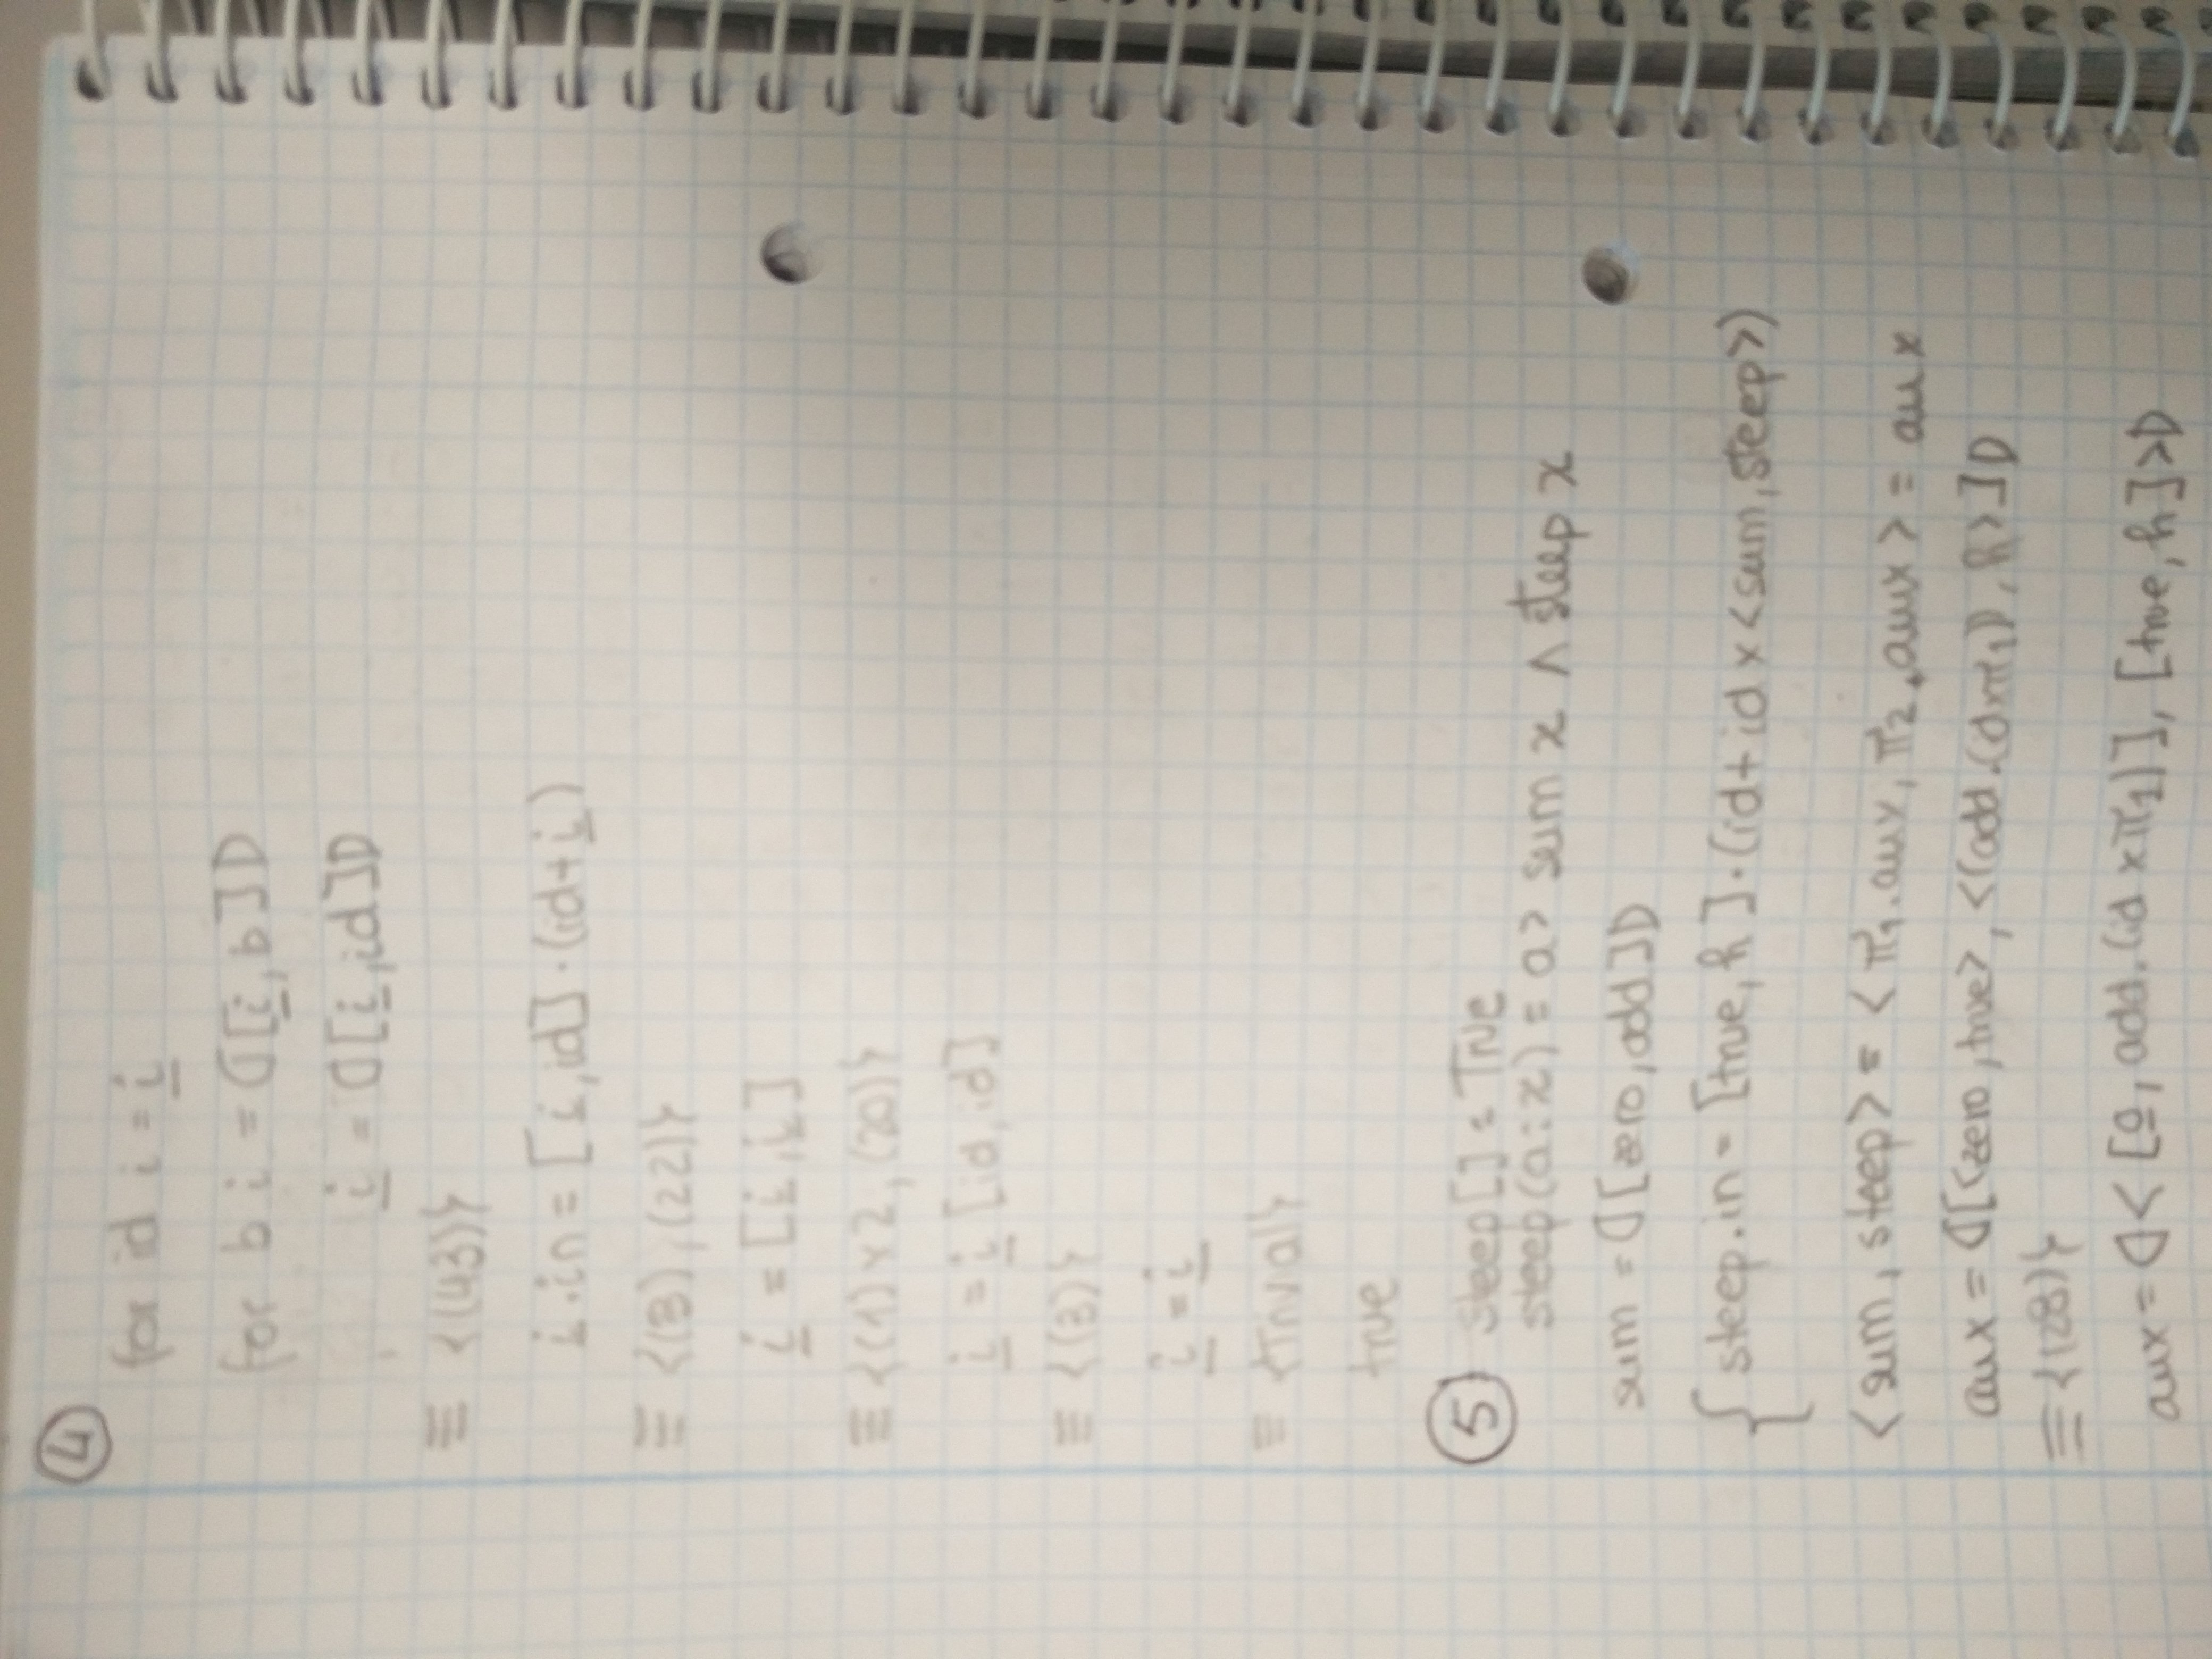 4
for id i = i̲
for b i = ⦇[i̲, b]⦈
i̲ = ⦇[i̲, id]⦈
≡ {(43)}
i̲ . in = [i̲, id] . (id + i̲)
≡ {(3), (22)}
i̲ = [i̲, i̲]
≡ {(1) x 2, (20)}
i̲ = i̲ [id, id]
≡ {(3)}
i̲ = i̲
≡ {Trivial}
true
5 steep [] = True
steep (a : x) = a > sum x ∧ steep x
sum = ⦇[zero, add]⦈
{ steep . in = [true, h] . (id + id × <sum, steep>)
<sum, steep> = <π1 . aux, π2 . aux> = aux
aux = ⦇[<zero, true>, <(add . (id×π1)), h>]⦈
≡ {(28)}
aux = ⦇< [0̲, add . (id × π1)], [true, h] >⦈